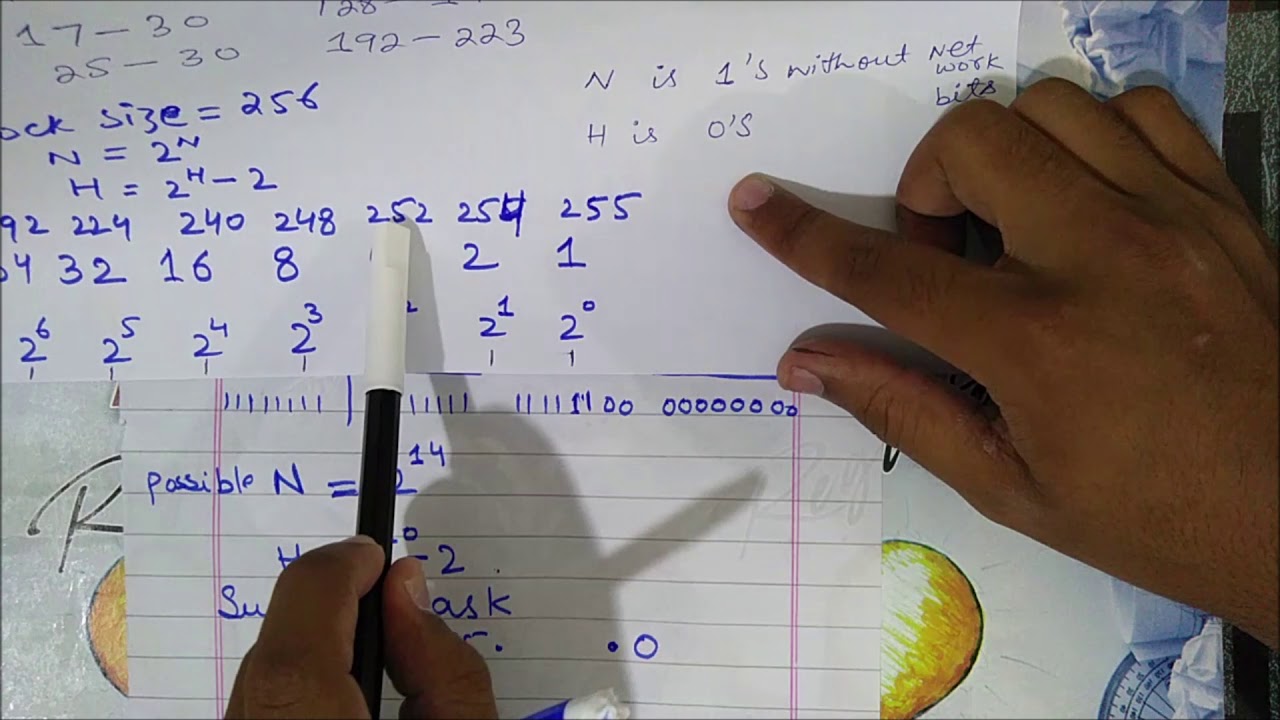 128-
17-30
192-223
25-30
N is 1's without Net work bits
ock size = 256
H is 0's
N = 2^N
H = 2^H - 2
92 224 240 248 252 254 255
4 32 16 8 2 1
2^6 2^5 2^4 2^3 2 2^1 2^0
11111111 111111 11111100 00000000
possible N = 2^14
H 0 - 2
Su ask
.0